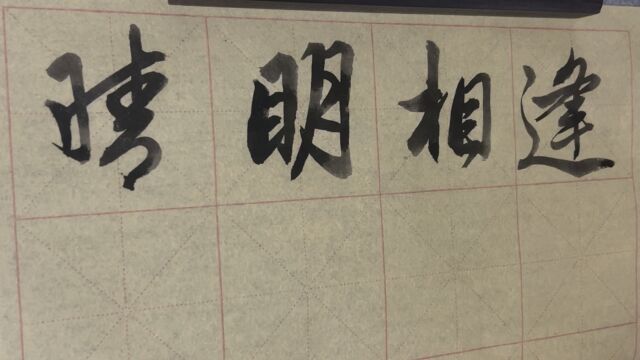 晴明相逢